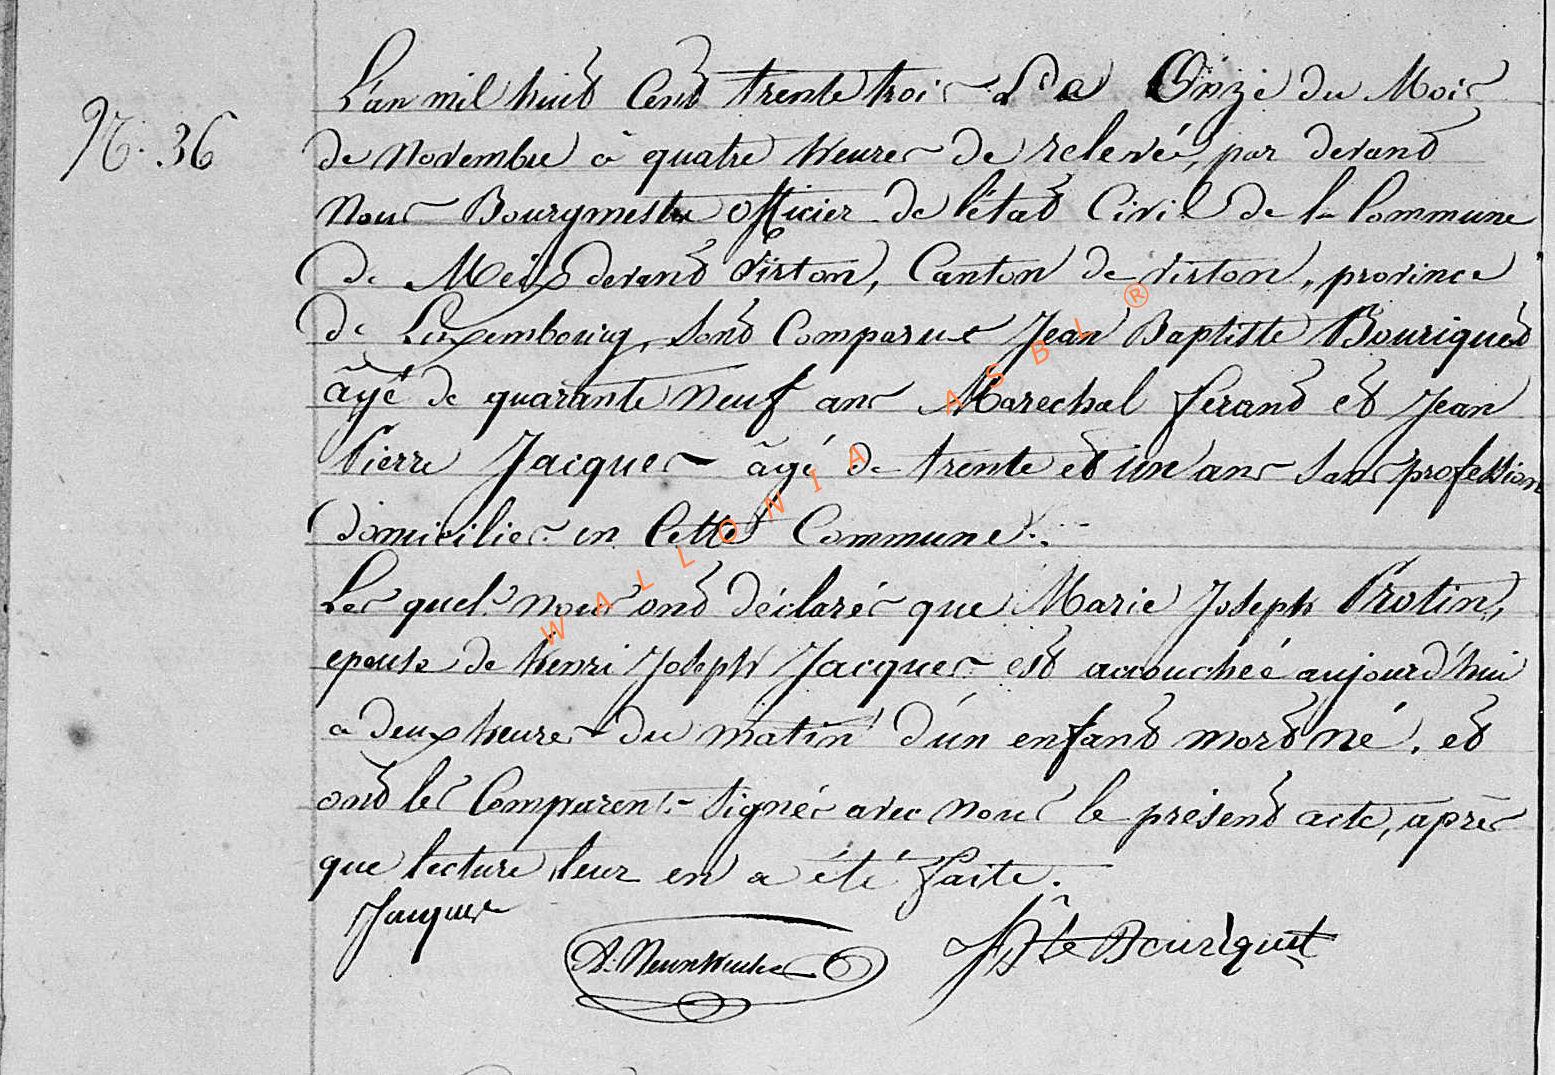 N.° 36
L'an mil huit Cent trente trois Le Onze du Mois
de Novembre à quatre heures de relevée, par devant
Nous Bourgmestre officier de l'état Civil de la Commune
de Meix devant Virton, Canton de virton, province
de Luxembourg, sont Comparus Jean Baptiste Bouriquet
âgé de quarante neuf ans Marechal ferant et Jean
Pierre Jacques âgé de trente et un ans sans profession
Domiciliés en Cette Commune.
Les quels nous ont déclarés que Marie Joseph Protin,
epouse de henri Joseph Jacques est accouchée aujourd'hui
a deux heures du matin d'un enfant mort né. et
ont les Comparents signés avec nous le présent acte, après
que lecture leur en a été faite.
Jacques
Bte Bouriquet
WALLONIA ASBL ®